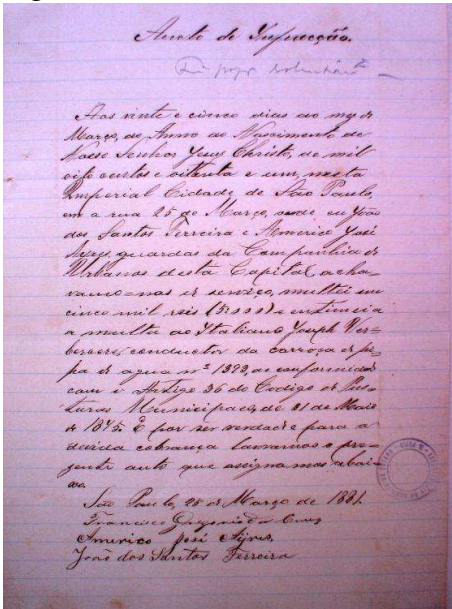 Aucto de Infracção.
Aos vinte e cinco dias do mez de
Março, do Anno do Nascimento de
Nosso Senhor Jesus Christo, de mil
oito centos e oitenta e um, nesta
Imperial Cidade de São Paulo,
em a rua 25 de Março, onde, eu João
dos Santos Ferreira e Americo José
Ayres, guardas da Companhia de
Urbanos desta Capital, acha-
vamo-nos de serviço, multei em
cinco mil reis (5:000) e intimei a
a multa ao Italiano Joseph
conductor da carroça de pi-
pa de agua nº 1393, de conformidade
com o Artigo 36 do Codigo de Pos-
turas Municipaes, de 31 de Maio
de 1875. E por ser verdade e para a
devida cobrança lavramos o pre-
zente auto que assignamos abai-
xo.
São Paulo, 25 de Março de 1881.
Francisco da Cruz
Americo José Ayres.
João dos Santos Ferreira